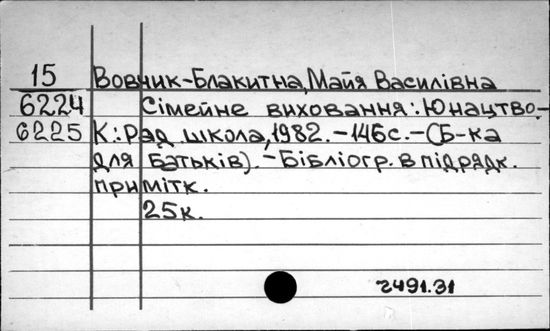 15 Вовчик-Блакитна, Майя Василівна
6224 Сімейне виховання: Юнацтво.-
6225 К.: Рад. школа, 1982. – 146с. – (Б-ка
для батьків). – Бібліогр. в підрядк.
примітк.
25к.
2491.31